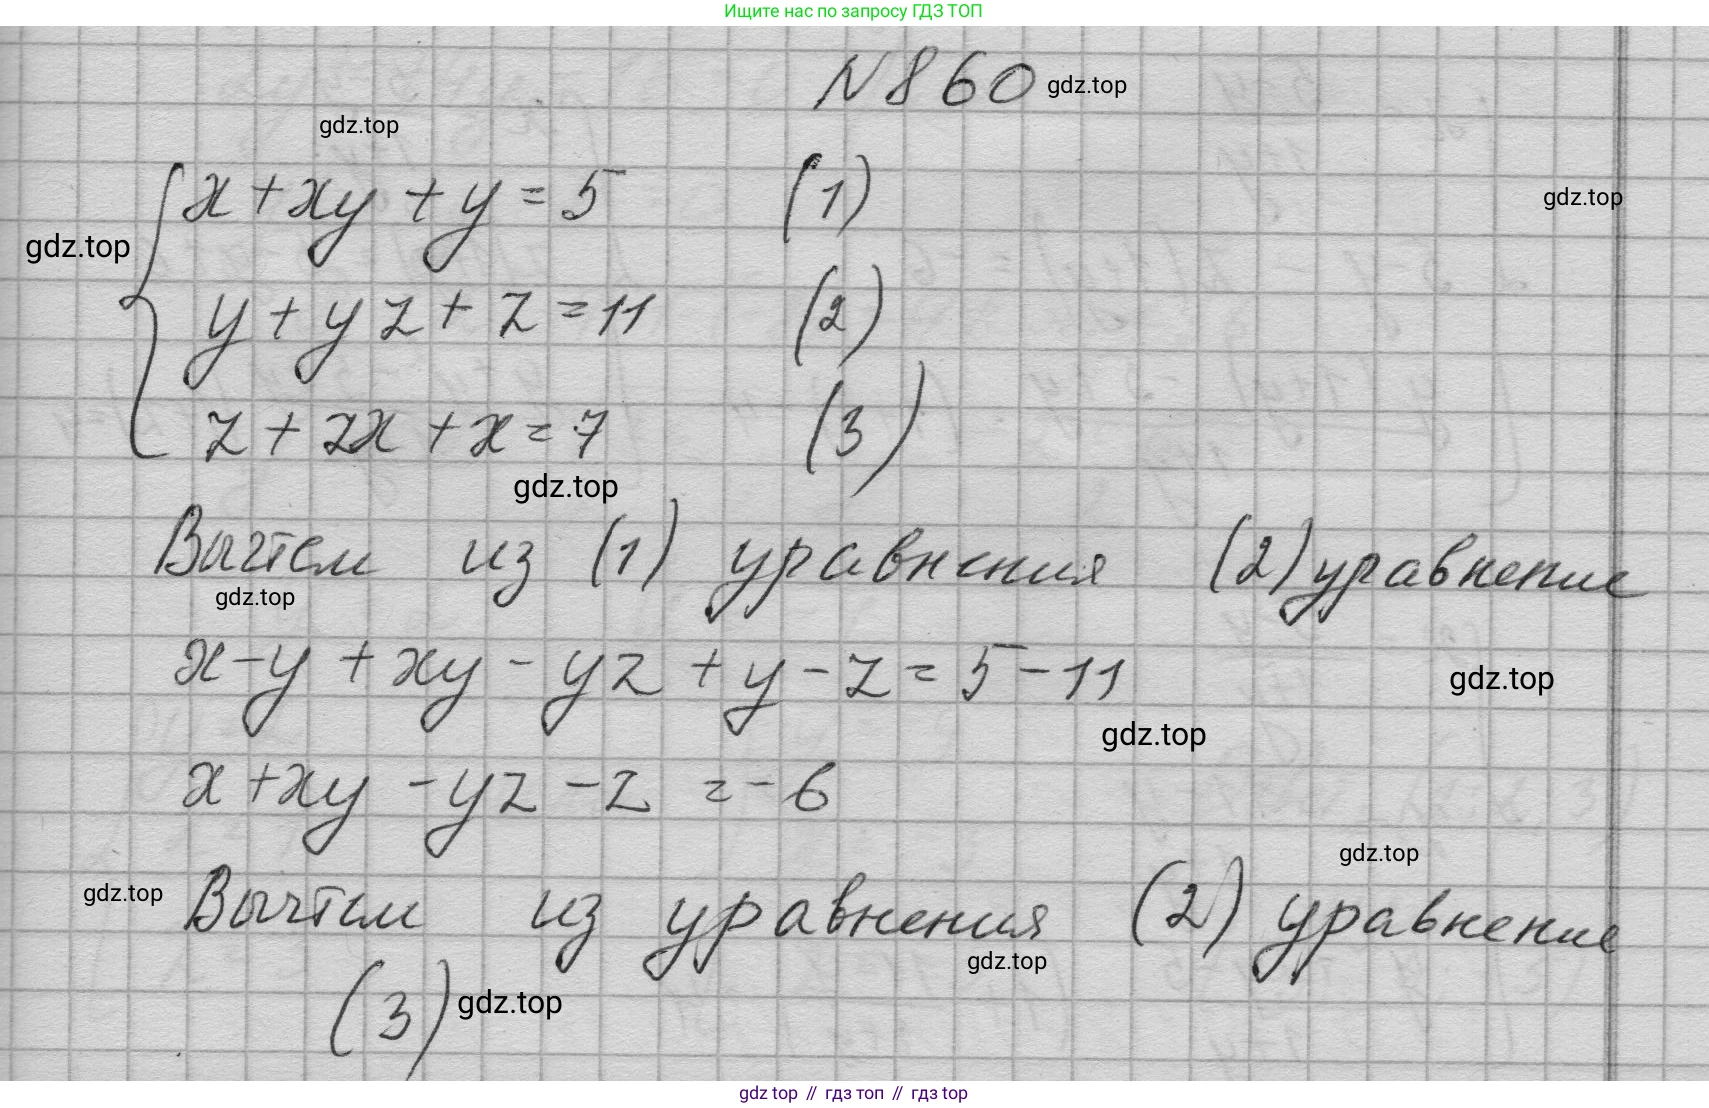 Ищите нас по запросу ГДЗ ТОП
N 860 gdz.top
gdz.top
x + xy + y = 5 (1)
gdz.top
gdz.top
y + yz + z = 11 (2)
z + zx + x = 7 (3)
gdz.top
Вычтем из (1) уравнения (2) уравнение
gdz.top
x - y + xy - yz + y - z = 5 - 11
gdz.top
gdz.top
x + xy - yz - z = -6
gdz.top
gdz.top
Вычтем из уравнения (2) уравнение
gdz.top
(3) gdz.top
gdz top // гдз топ // gdz.top